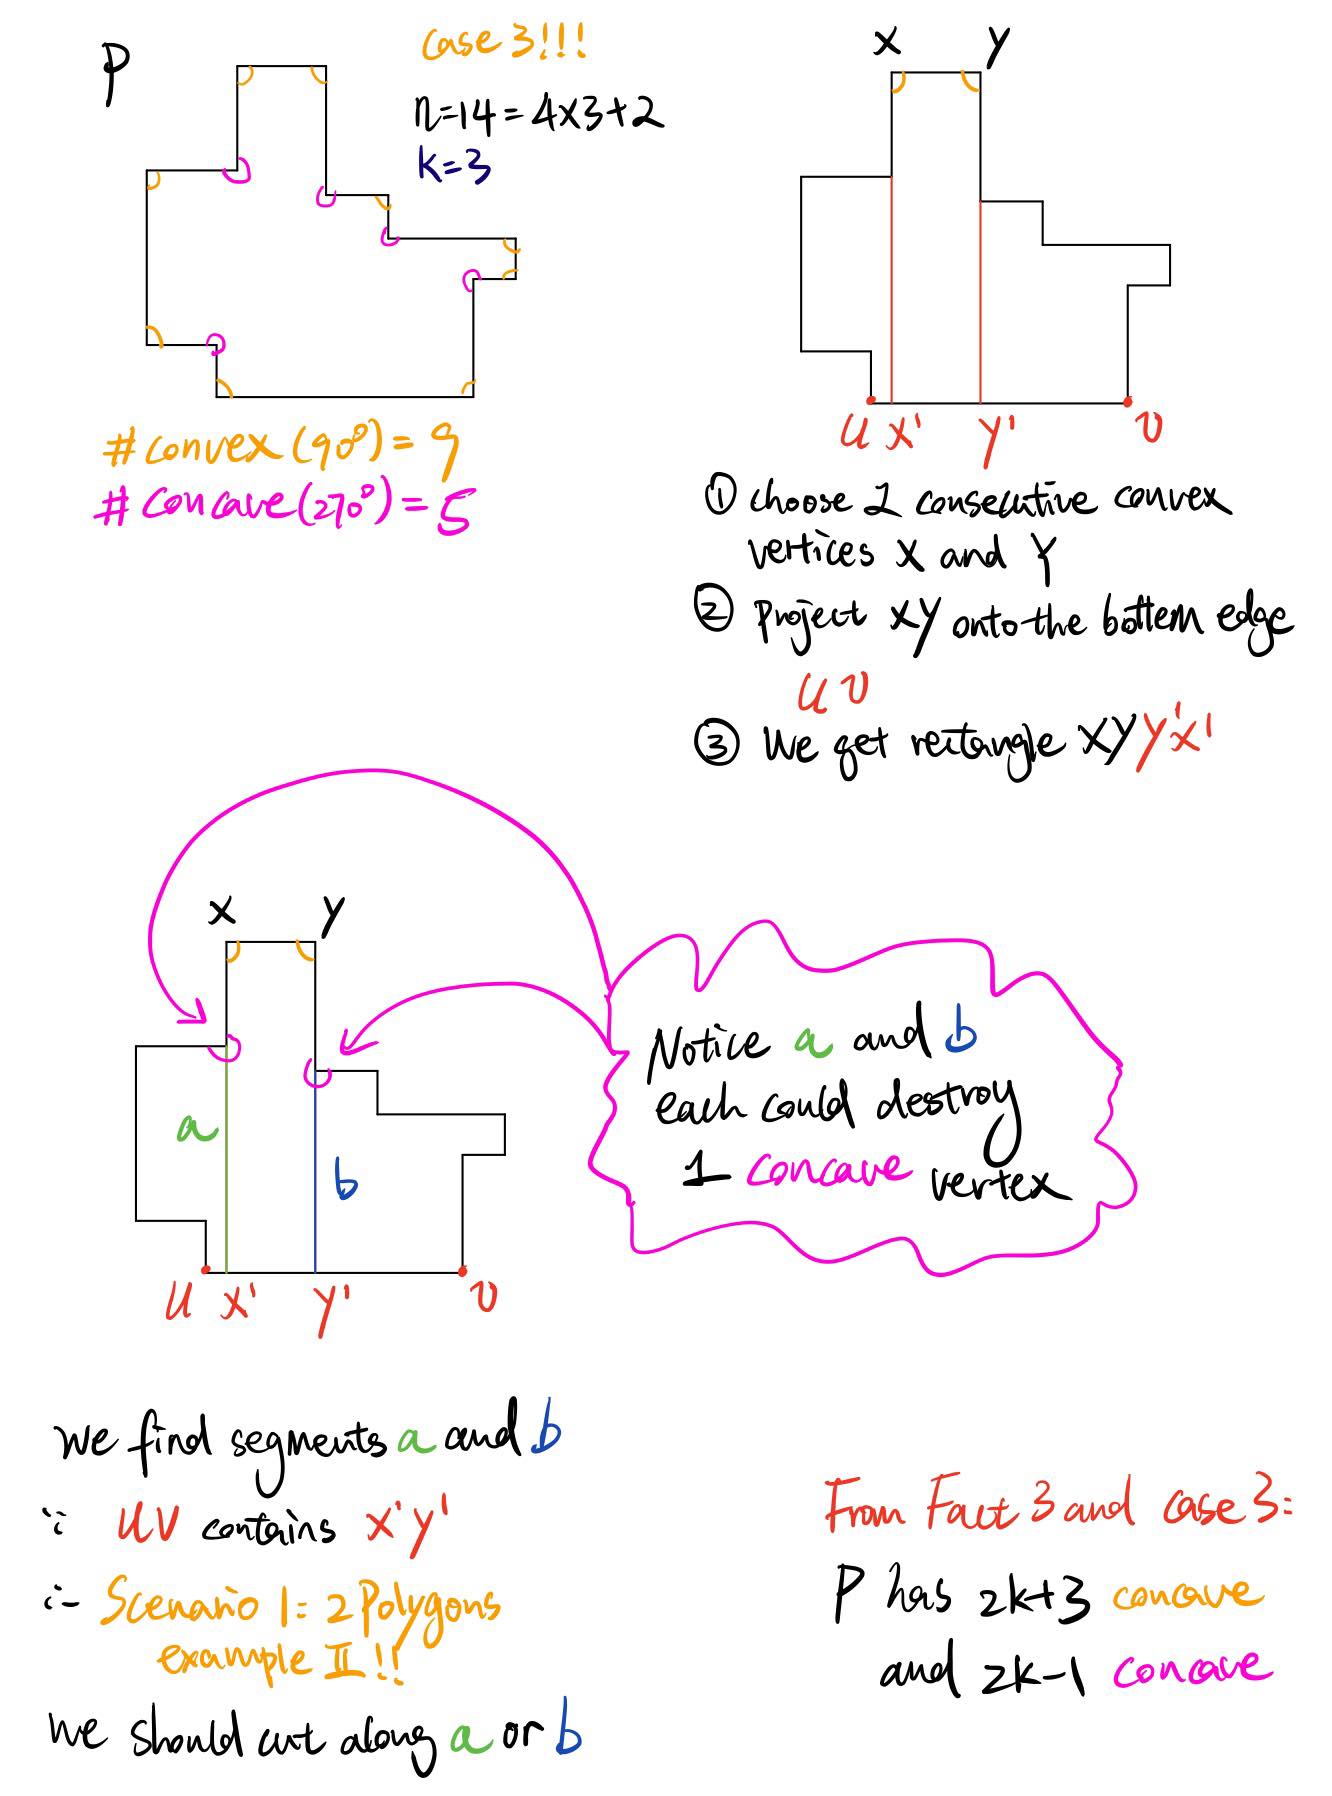 P
Case 3!!!
n=14=4x3+2
k=3
#convex(90°)=9
#concave(270°)=5
X Y
U X' Y' V
① choose 2 consecutive convex
vertices X and Y
② Project XY onto the bottem edge
UV
③ We get rectangle XYY'X'
X Y
a
b
U X' Y' V
Notice a and b
each could destroy
1 concave vertex
we find segments a and b
∵ UV contains X'Y'
∴ Scenario 1: 2 Polygons
example II!!
we should cut along a or b
From Fact 3 and case 3:
P has 2k+3 concave
and 2k-1 concave